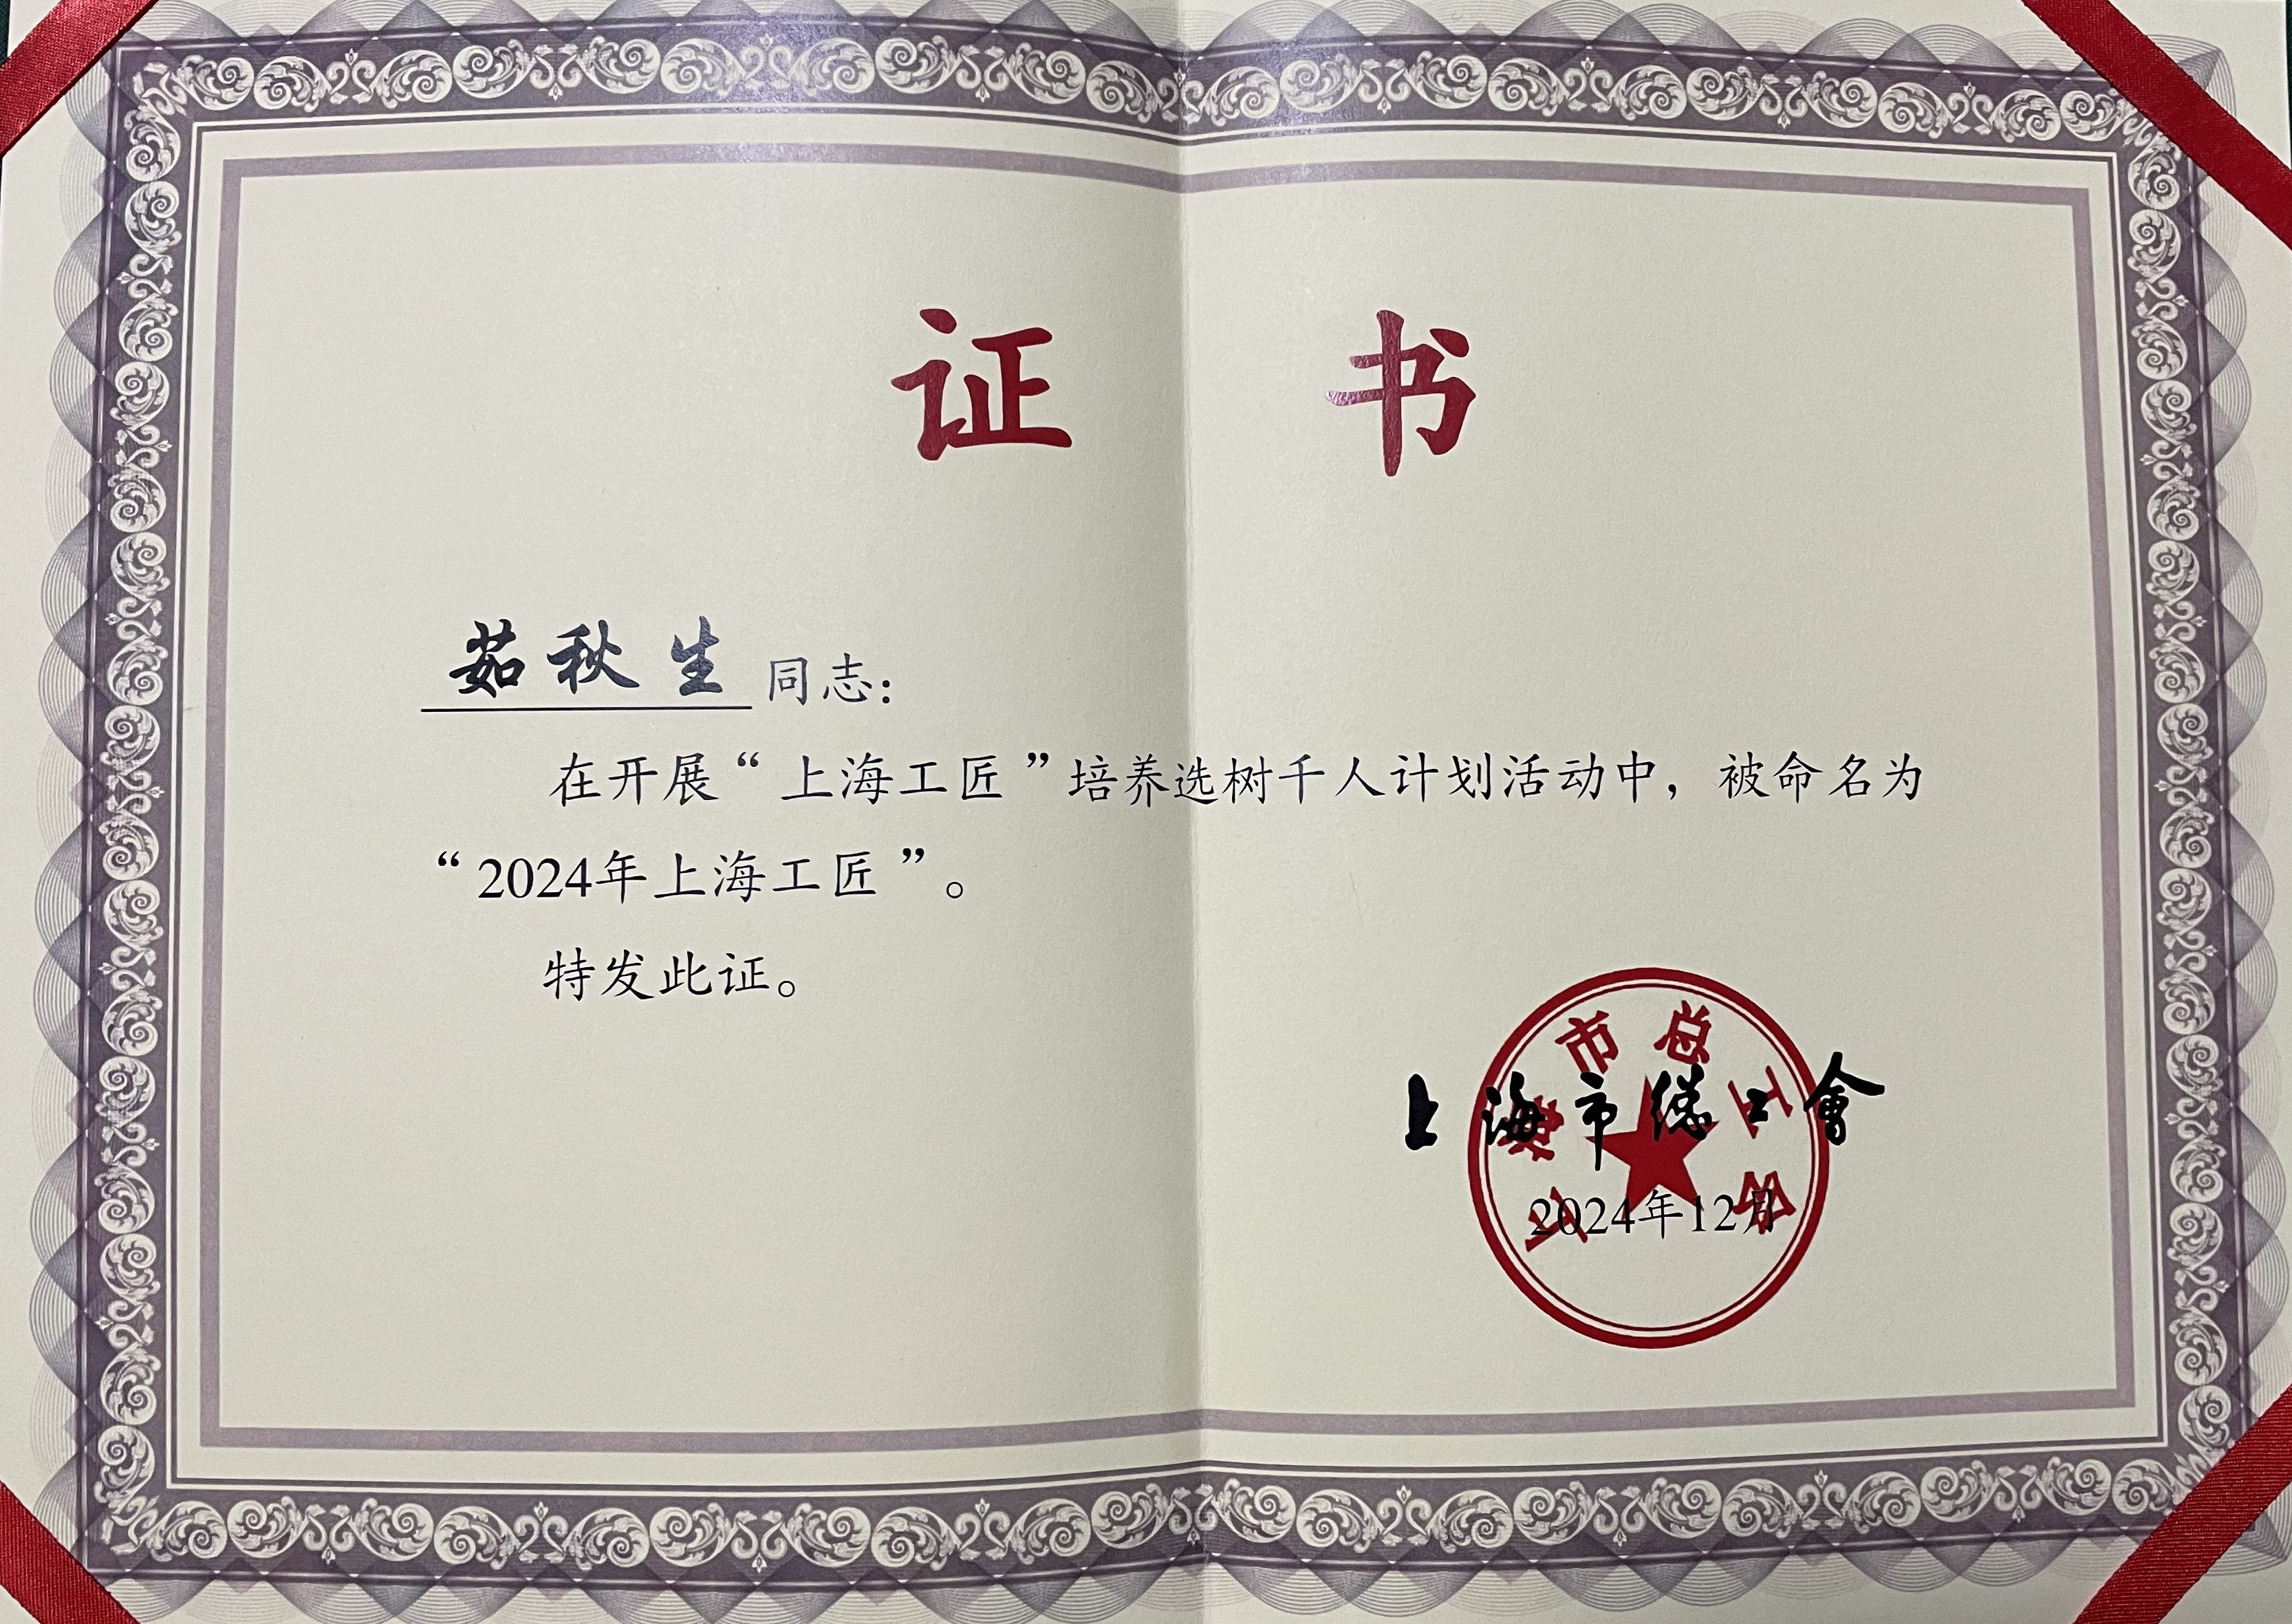 证 书
茹秋生 同志：
在开展“上海工匠”培养选树千人计划活动中，被命名为
“2024年上海工匠”。
特发此证。
上海市总工会
上海市總工會
2024年12月